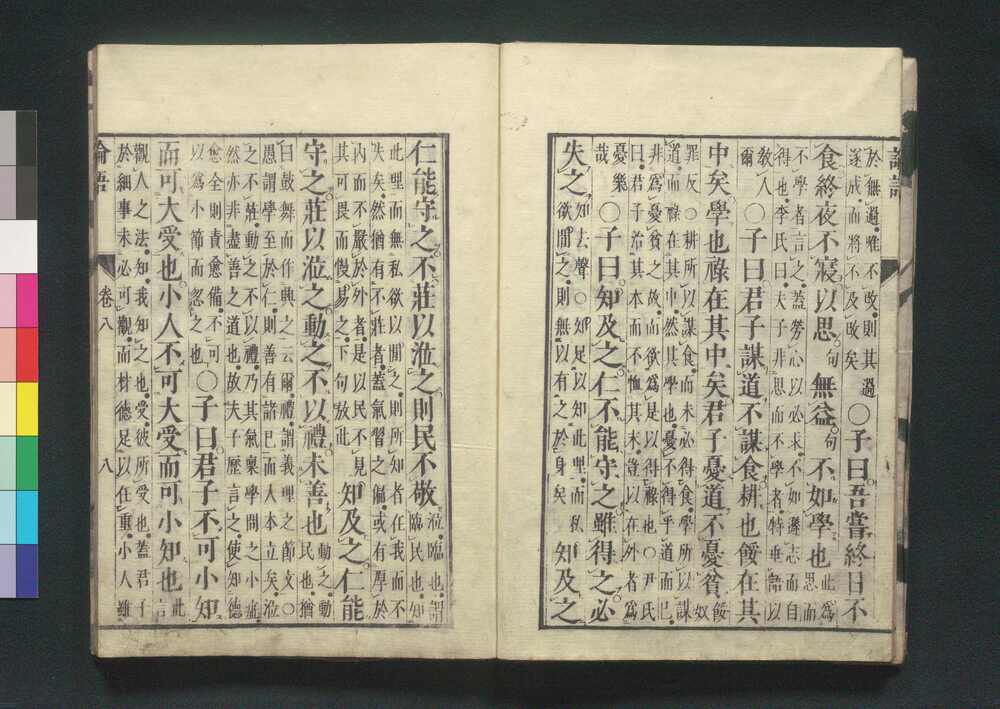 論語
於無過惟不改則其過
遂成而將不及改矣
○子曰吾嘗終日不
食終夜不寢以思句無益句不如學也
此爲
思而
不學者言之蓋勞心以必求不如遜志而自
得也李氏曰夫子非思而不學者特垂語以
教人
爾
○子曰君子謀道不謀食耕也餒在其
中矣學也祿在其中矣君子憂道不憂貧
餒
奴
罪反○耕所以謀食而未必得食學所以謀
道而祿在其中然其學也憂不得乎道而已
非爲憂貧之故而欲爲是以得祿也○尹氏
曰君子治其本而不恤其末豈以在外者爲
憂樂
哉
○子曰知及之仁不能守之雖得之必
失之
知去聲○知足以知此理而私
欲間之則無以有之於身矣
知及之
仁能守之不莊以涖之則民不敬
涖臨也謂
臨民也知
此理而無私欲以間之則所知者在我而不
失矣然猶有不莊者蓋氣習之偏或有厚於
內而不嚴於外者是以民不見
其可畏而慢易之下句放此
知及之仁能
守之莊以涖之動之不以禮未善也
動之動
民也猶
曰鼓舞而作興之云爾禮謂義理之節文○
愚謂學至於仁則善有諸己而大本立矣涖
之不莊動之不以禮乃其氣稟學問之小疵
然亦非盡善之道也故夫子歷言之使知德
愈全則責愈備不可
以爲小節而忽之也
○子曰君子不可小知
而可大受也小人不可大受而可小知也
此
言
觀人之法知我知之也受彼所受也蓋君子
於細事未必可觀而材德足以任重小人雖
論語 卷八 八